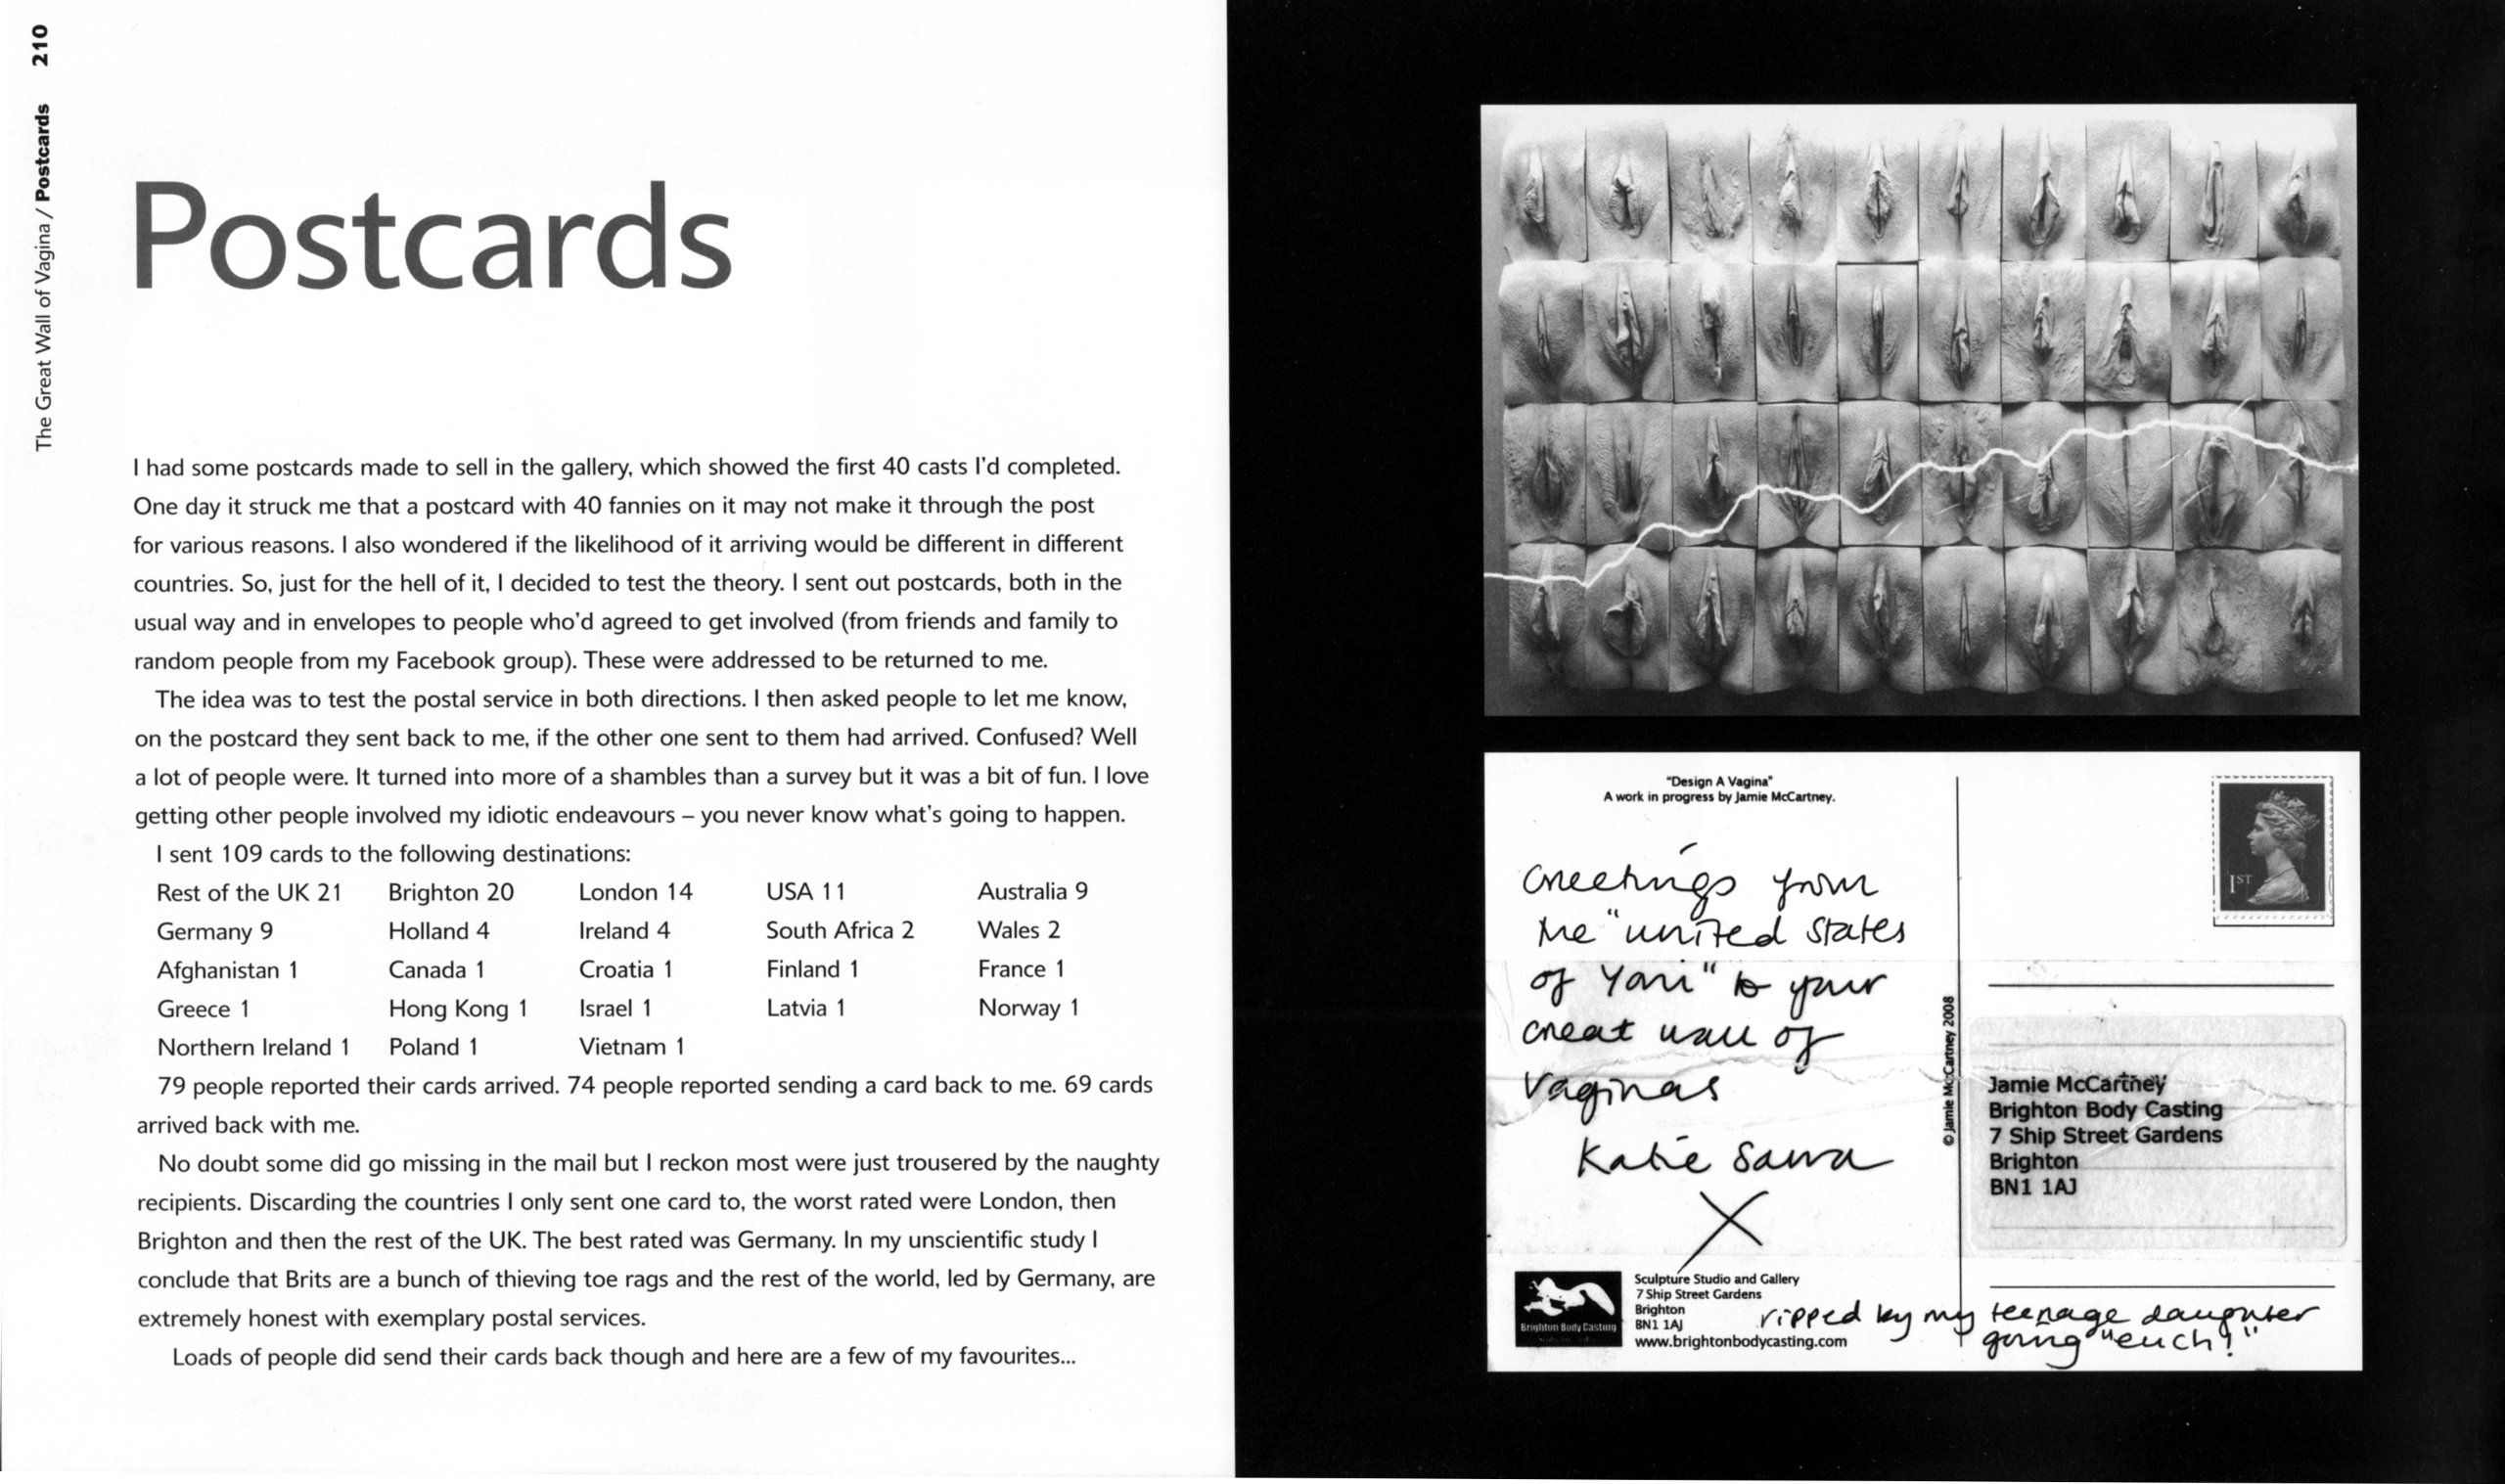 210
The Great Wall of Vagina / Postcards
Postcards
I had some postcards made to sell in the gallery, which showed the first 40 casts I'd completed.
One day it struck me that a postcard with 40 fannies on it may not make it through the post
for various reasons. I also wondered if the likelihood of it arriving would be different in different
countries. So, just for the hell of it, I decided to test the theory. I sent out postcards, both in the
usual way and in envelopes to people who'd agreed to get involved (from friends and family to
random people from my Facebook group). These were addressed to be returned to me.
The idea was to test the postal service in both directions. I then asked people to let me know,
on the postcard they sent back to me, if the other one sent to them had arrived. Confused? Well
a lot of people were. It turned into more of a shambles than a survey but it was a bit of fun. I love
getting other people involved my idiotic endeavours – you never know what's going to happen.
I sent 109 cards to the following destinations:
Rest of the UK 21 Brighton 20 London 14 USA 11 Australia 9
Germany 9 Holland 4 Ireland 4 South Africa 2 Wales 2
Afghanistan 1 Canada 1 Croatia 1 Finland 1 France 1
Greece 1 Hong Kong 1 Israel 1 Latvia 1 Norway 1
Northern Ireland 1 Poland 1 Vietnam 1
79 people reported their cards arrived. 74 people reported sending a card back to me. 69 cards
arrived back with me.
No doubt some did go missing in the mail but I reckon most were just trousered by the naughty
recipients. Discarding the countries I only sent one card to, the worst rated were London, then
Brighton and then the rest of the UK. The best rated was Germany. In my unscientific study I
conclude that Brits are a bunch of thieving toe rags and the rest of the world, led by Germany, are
extremely honest with exemplary postal services.
Loads of people did send their cards back though and here are a few of my favourites...
"Design A Vagina"
A work in progress by Jamie McCartney.
Greetings from
the "united states
of Yoni" to your
Great wall of
Vaginas
Katie
X
© Jamie McCartney 2008
1ST
Jamie McCartney
Brighton Body Casting
7 Ship Street Gardens
Brighton
BN1 1AJ
Brighton Body Casting
Sculpture Studio and Gallery
7 Ship Street Gardens
Brighton
BN1 1AJ
www.brightonbodycasting.com
ripped by my teenage daughter
going "euch!"